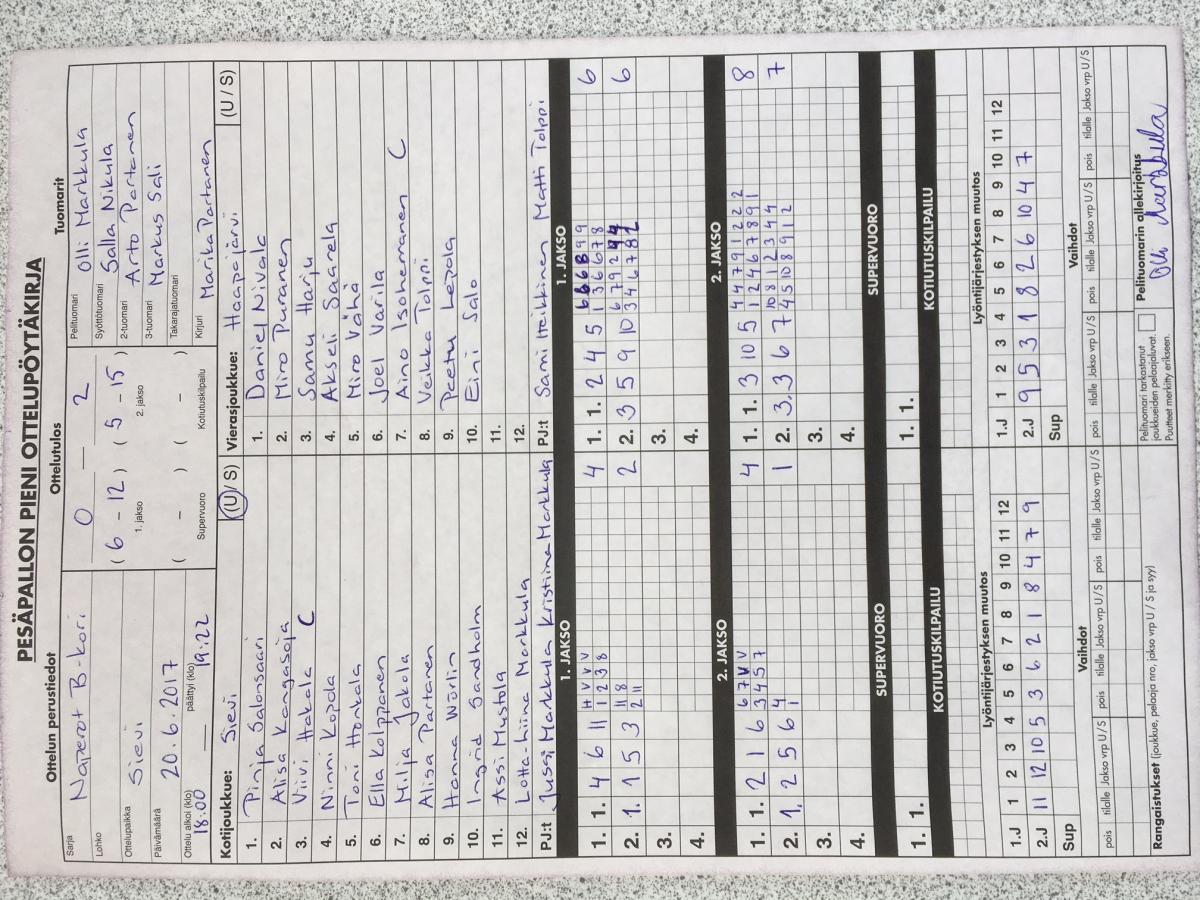 PESÄPALLON PIENI OTTELUPÖYTÄKIRJA
Ottelun perustiedot
Ottelutulos
Tuomarit
Sarja
Naperot B-kori
Lohko
Ottelupaikka
Sievi
Päivämäärä
20.6.2017
Ottelu alkoi (klo)
18:00
päättyi (klo)
19:22
0 — 2
( 6 - 12 ) ( 5 - 15 )
1. jakso 2. jakso
( - ) ( - )
Supervuoro Kotiutuskilpailu
Pelituomari
Olli Markkula
Syöttötuomari
Salla Nikula
2-tuomari
Arto Partanen
3-tuomari
Markus Sali
Takarajatuomari
Kirjuri
Marika Partanen
Kotijoukkue: Sievi (U / S)
1. Pinja Salonsaari
2. Alisa Kangasoja
3. Viivi Hakala C
4. Ninni Kopola
5. Toni Honkala
6. Ella Kolppanen
7. Milja Jokola
8. Alisa Partanen
9. Hanna Wörlin
10. Ingrid Sandholm
11. Assi Mustola
12. Lotta-Liina Markkula
PJ:t Jussi Markkula Kristiina Markkula
Vierasjoukkue: Haapajärvi (U / S)
1. Daniel Nivala
2. Miro Puranen
3. Samu Harju
4. Akseli Saarela
5. Miro Vähä
6. Joel Varila
7. Aino Isoherranen C
8. Veikka Tolppi
9. Peetu Lepola
10. Eini Salo
11.
12.
PJ:t Sami Heikkinen Matti Tolppi
1. JAKSO
1. 1. 4 6 11 H V V V 4
1 2 3 8
2. 1. 1 5 3 11 8 2
2 11
3.
4.
2. JAKSO
1. 1. 2 1 6 6 7 V V 4
3 4 5 7
2. 1. 2 5 6 4 1
1
3.
4.
SUPERVUORO
1. 1.
KOTIUTUSKILPAILU
1. JAKSO
1. 1. 2 4 5 6 6 6 8 9 9 6
1 3 6 6 7 8
2. 3 5 9 10 6 7 9 2 9 9 6
3 4 6 7 8 2
3.
4.
2. JAKSO
1. 1. 3 10 5 4 4 7 9 1 2 2 2 8
1 2 4 6 7 8 9 1
2. 3. 3 6 7 10 8 1 2 3 4 4 7
4 5 10 8 9 1 2
3.
4.
SUPERVUORO
1. 1.
KOTIUTUSKILPAILU
Lyöntijärjestyksen muutos
1.J 1 2 3 4 5 6 7 8 9 10 11 12
2.J 11 12 10 5 3 6 2 1 8 4 7 9
Sup
Vaihdot
pois tilalle Jakso vrp U / S pois tilalle Jakso vrp U / S pois tilalle Jakso vrp U / S
Lyöntijärjestyksen muutos
1.J 1 2 3 4 5 6 7 8 9 10 11 12
2.J 9 5 3 1 8 2 6 10 4 7
Sup
Vaihdot
pois tilalle Jakso vrp U / S pois tilalle Jakso vrp U / S pois tilalle Jakso vrp U / S
Rangaistukset (joukkue, pelaaja nro, jakso vrp U / S ja syy)
Pelituomari tarkastanut
joukkueiden pelaajaluvat.
Puutteet merkitty erikseen.
Pelituomarin allekirjoitus
Olli Markkula